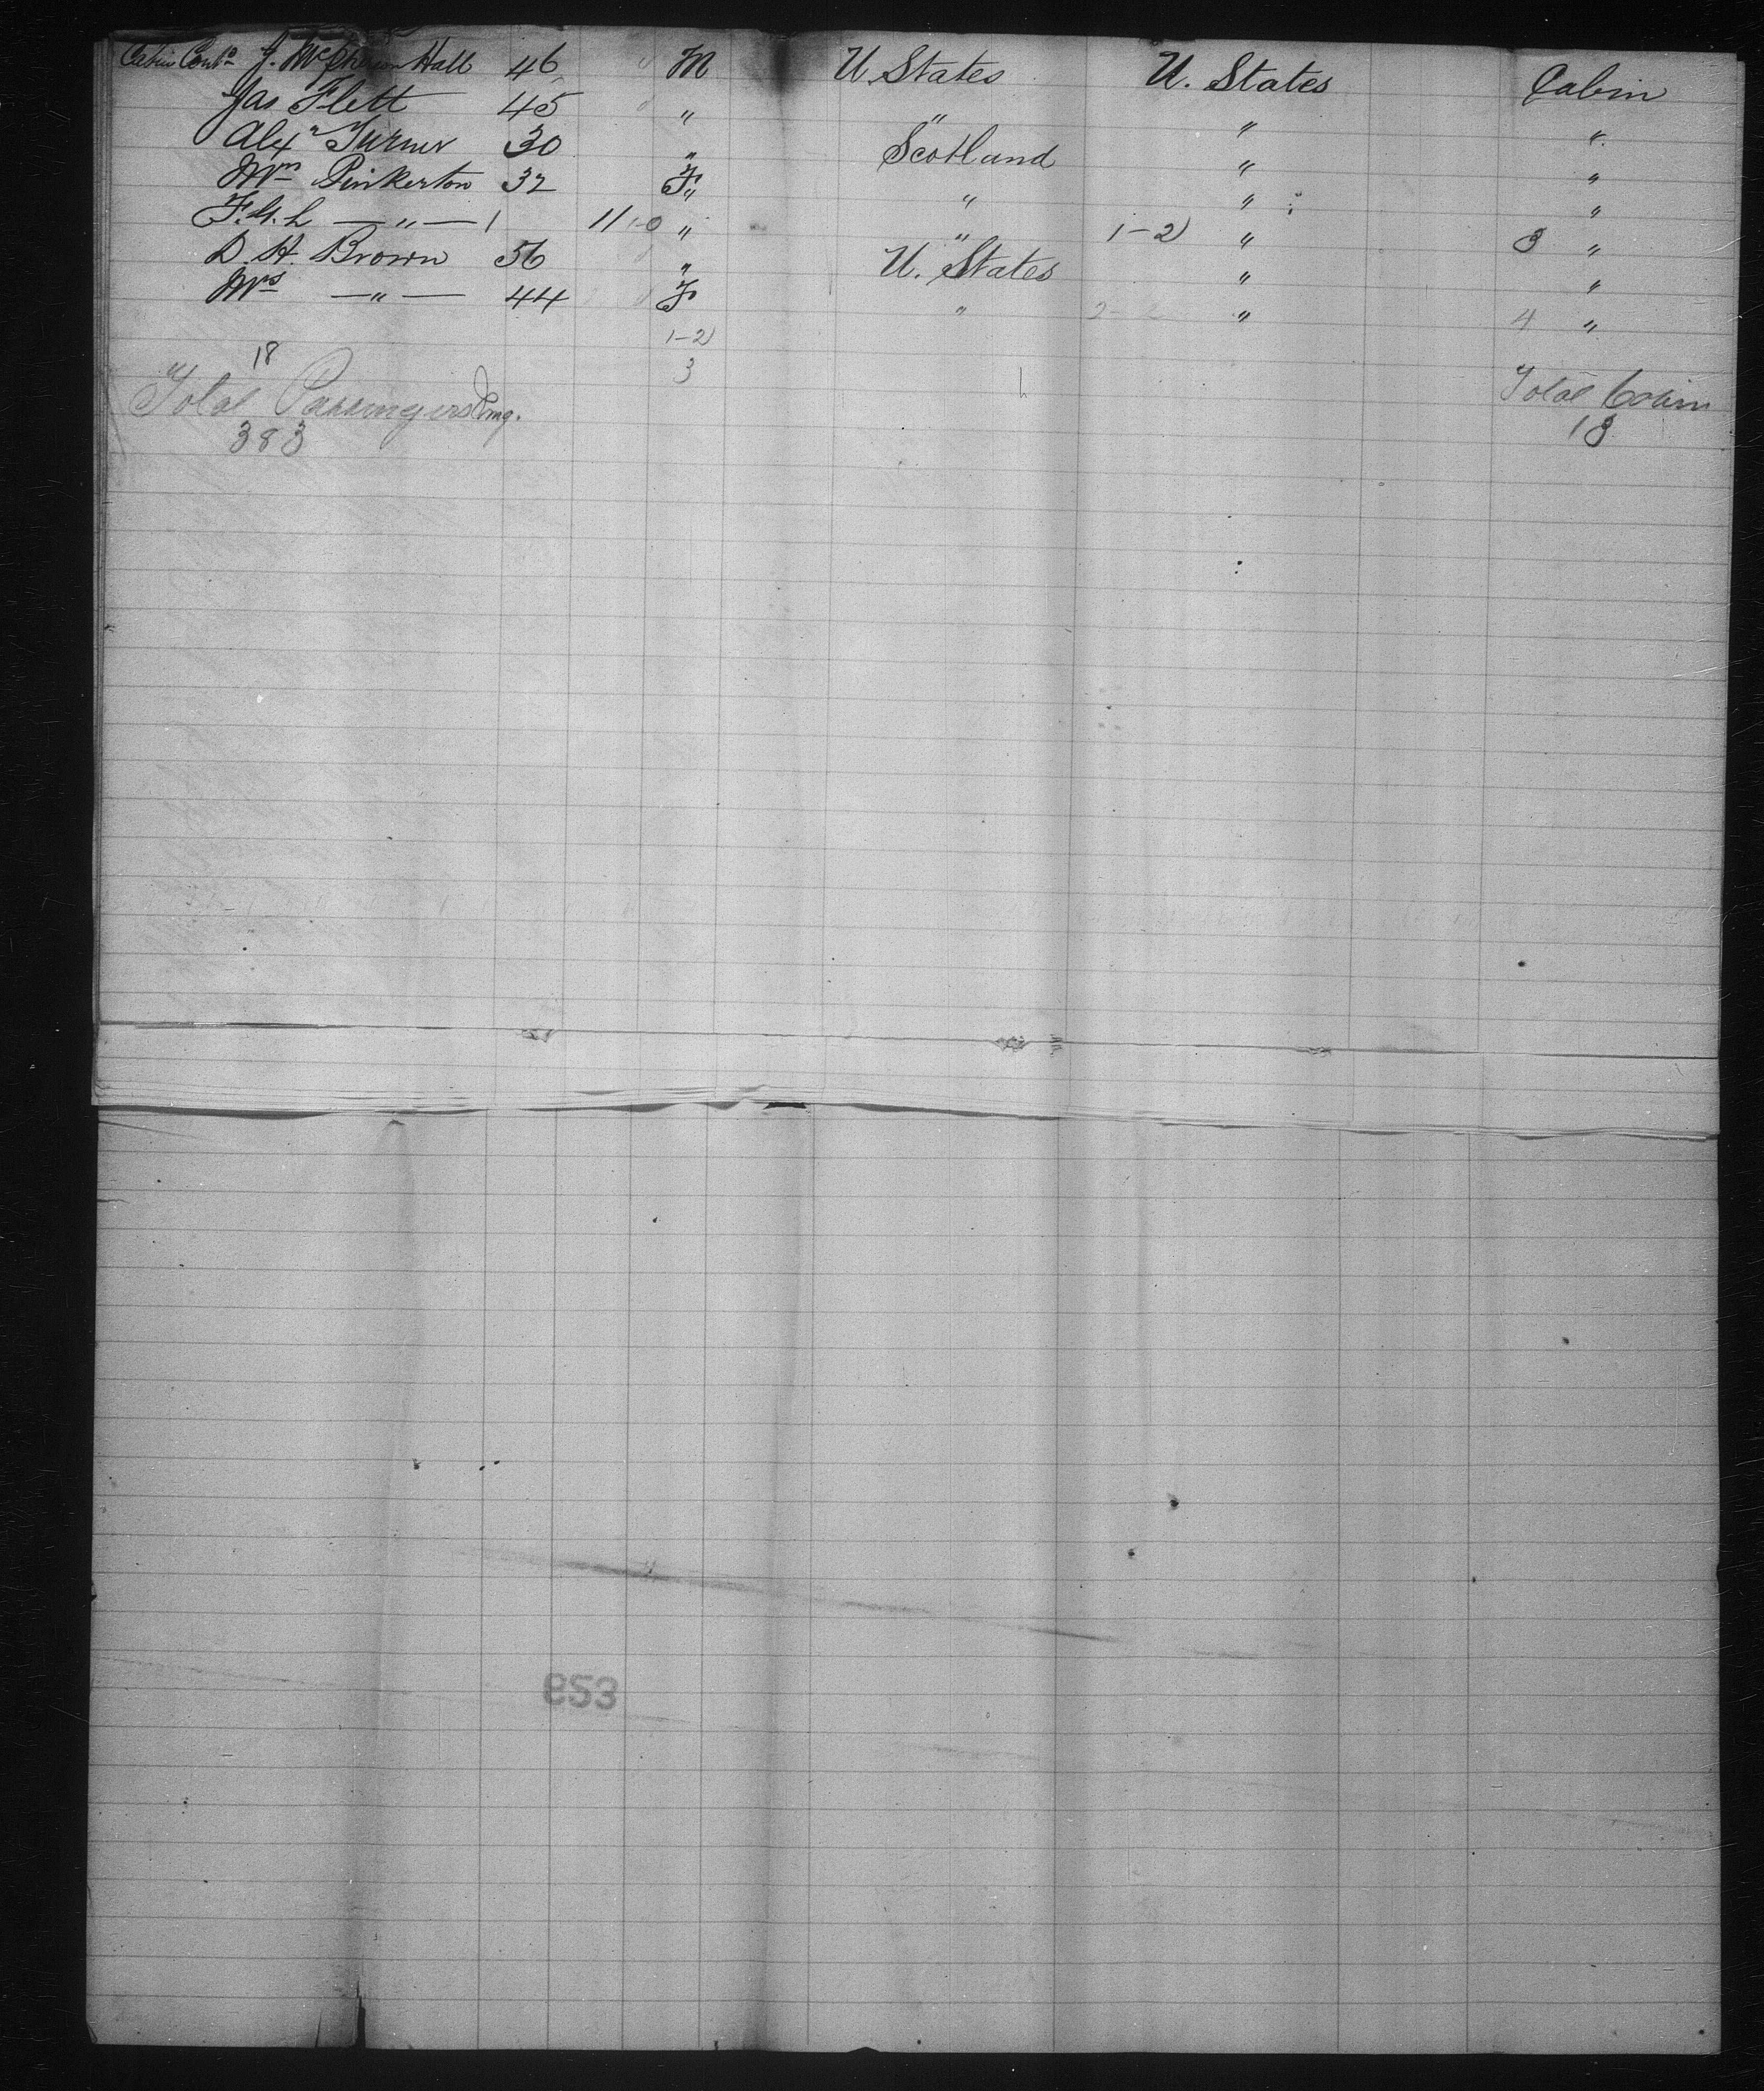 Cabin Cont^d J. McPherson Hall 46 M U States U. States Cabin
Jas Flett 45 " " " "
Alex^r Turner 30 " Scotland " "
W^m Pinkerton 32 " " " "
F. G. L —"— 1 11 1-0 " " 1-2 " 3 "
D. H. Brown 56 " U. States " "
Mrs —"— 44 F " " 4 "
1-2
18 3
Total Passengers Total Cabin
383 18
953